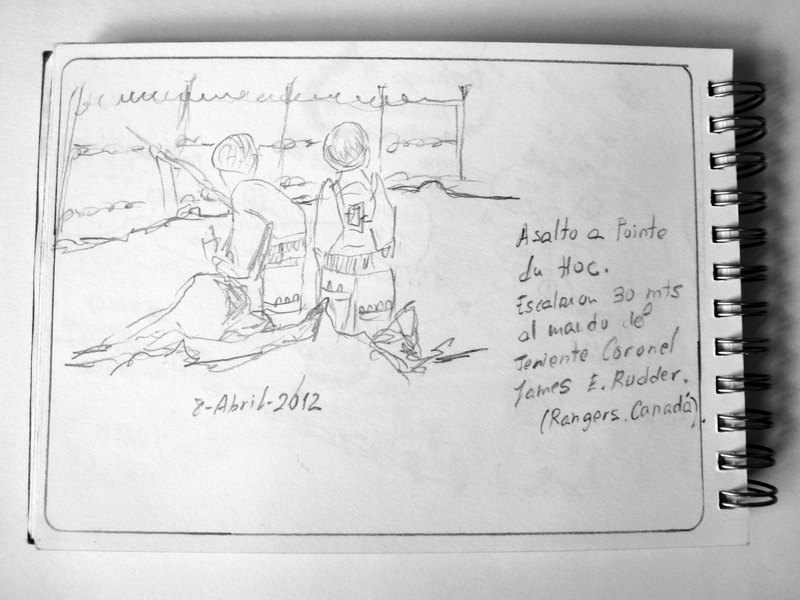 8-Abril-2012
Asalto a Pointe
du Hoc.
Escalaron 30 mts
al mando del
Teniente Coronel
James E. Rudder.
(Rangers. Canadá).